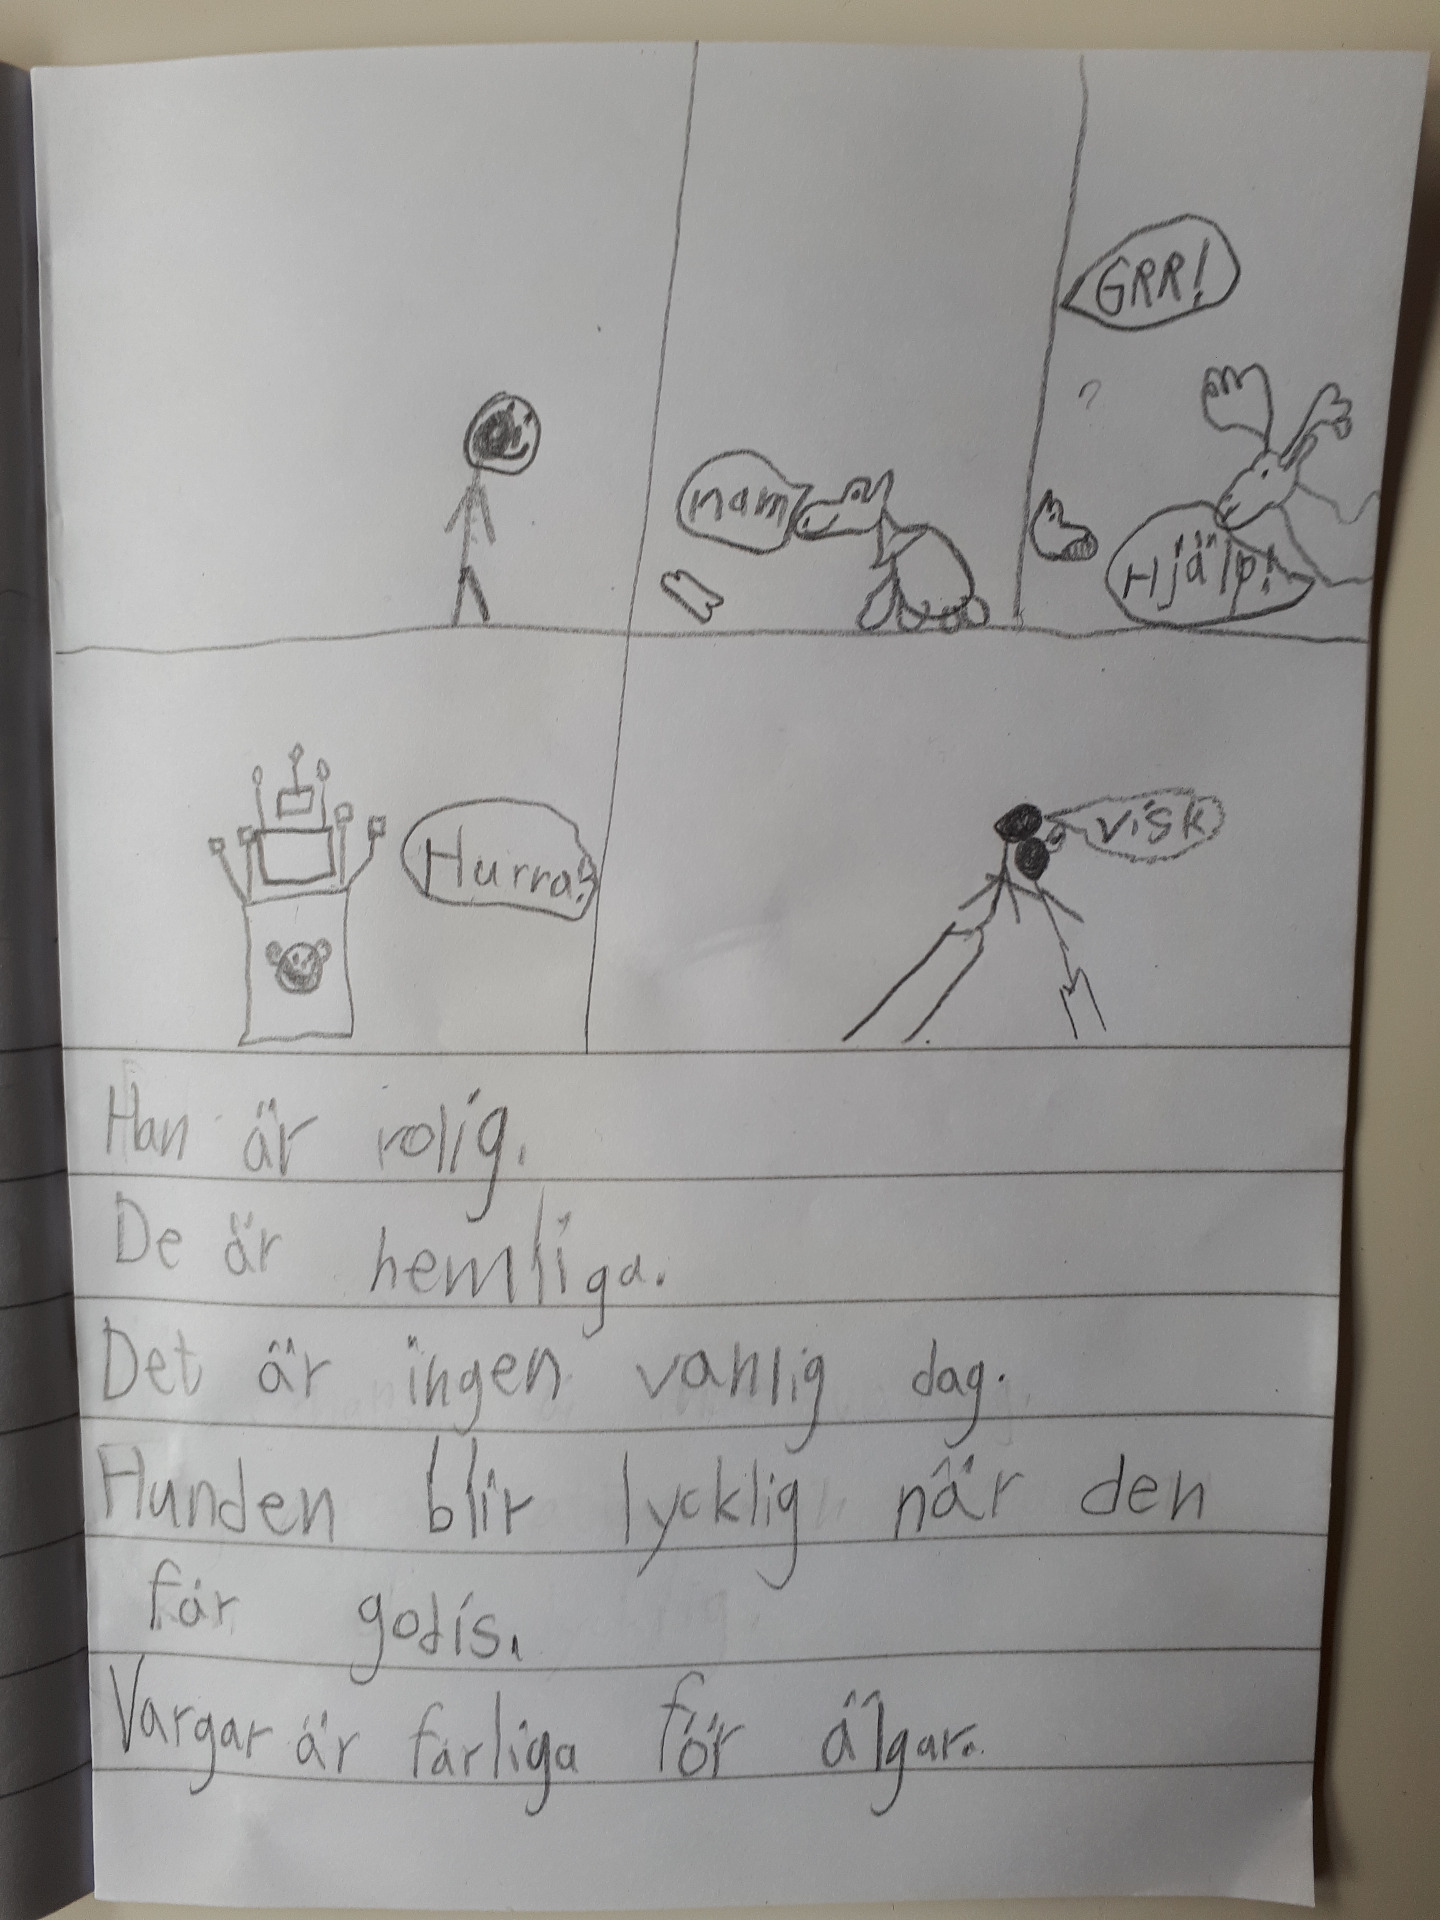 GRR!
?
nam
Hjälp!
Hurra!
visk
Han är rolig.
De är hemliga.
Det är ingen vanlig dag.
Hunden blir lycklig när den
får godis.
Vargar är farliga för älgar.